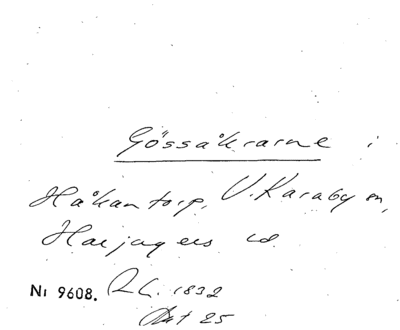 Gössåkrarne i
Håkantorp, V. Karaby sn,
Harjagers hd
Nr 9608. R.L. 1832
Akt 25